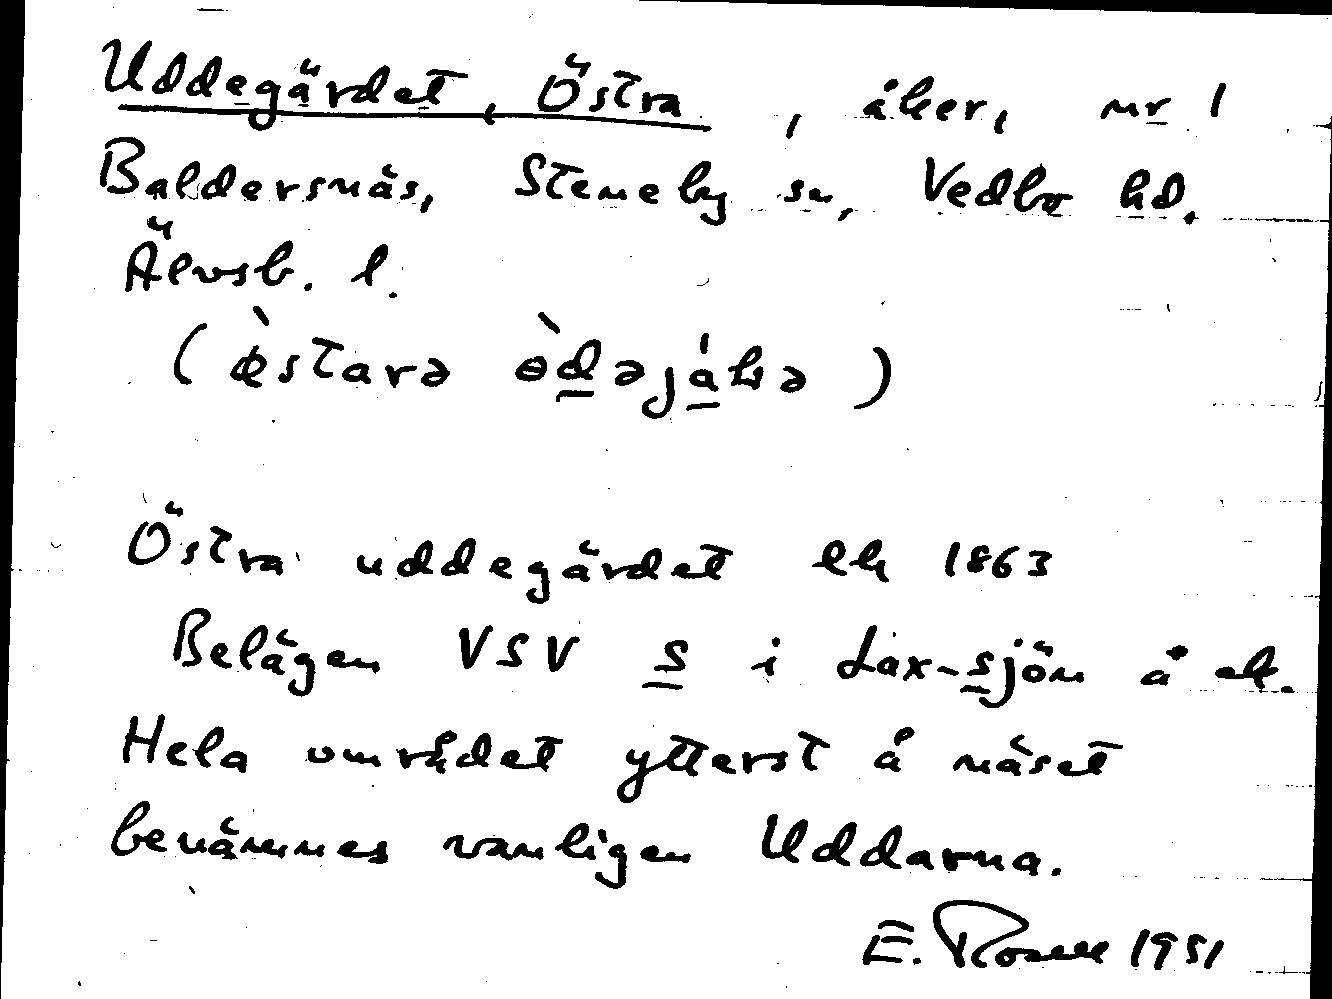 Uddegärdet, Östra, åker, nr 1
Baldersnäs, Steneby sn, Vedbo hd.
Älvsb. l.
(æ̀starə ɵ̀dəjákə)
Östra uddegärdet lk 1863
Belägen VSV s i Lax-sjön å ek.
Hela området ytterst å näset
benämnes vanligen Uddarna.
E. Rosell 1951